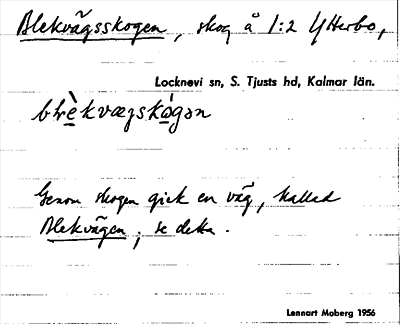 Blekvägsskogen, skog å 1:2 Ytterbo,
Locknevi sn, S. Tjusts hd, Kalmar län.
Genom skogen gick en väg, kallad
Blekvägen; se detta.
Lennart Moberg 1956